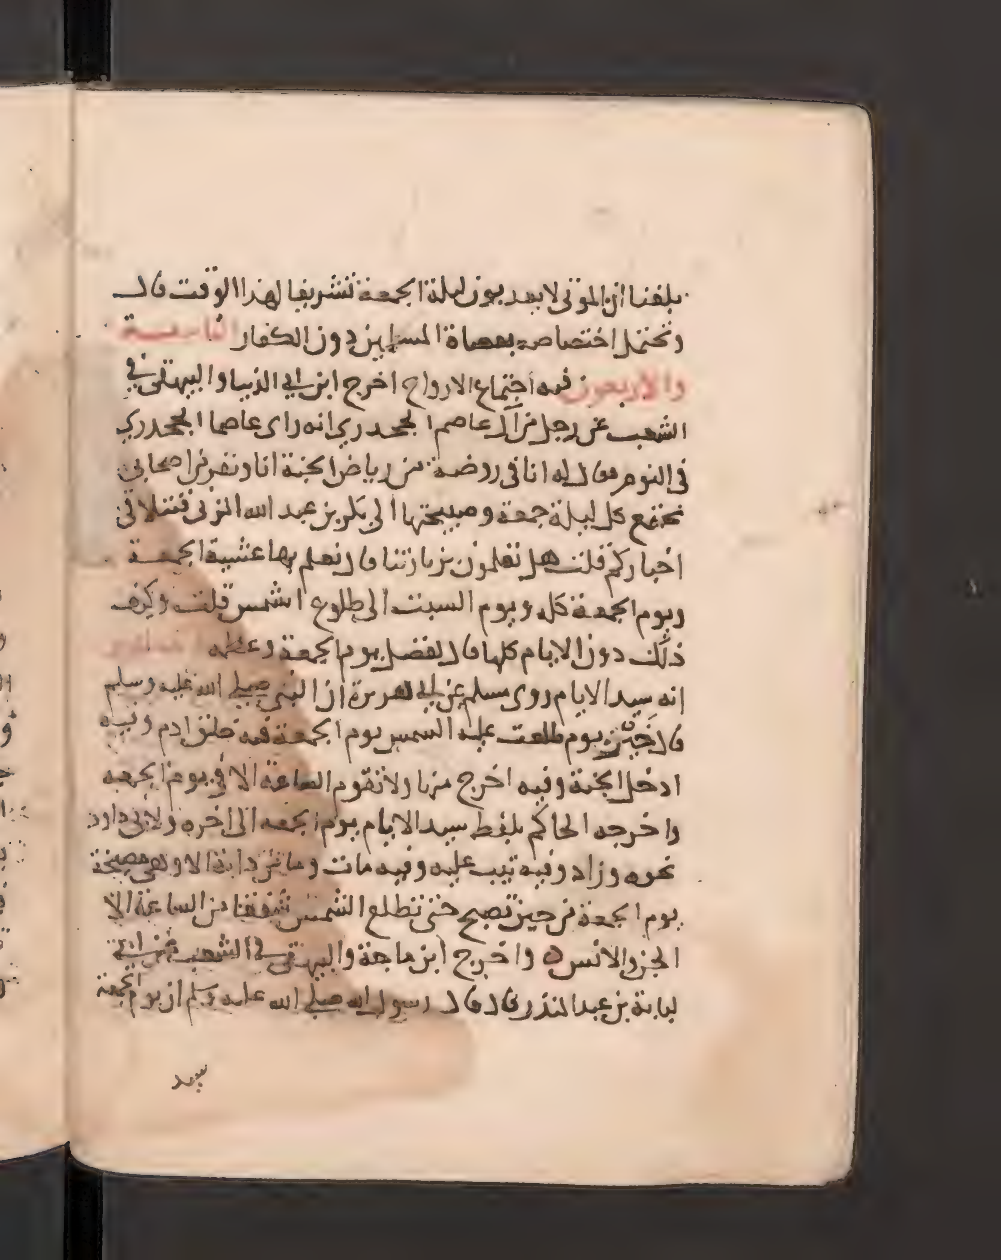 بلغنا ان الموتى لا يعذبون ليلة الجمعة تشريفا لهذا الوقت قال
ويحتمل اختصاصه بعصاة المسلمين دون الكفار الثامنة
والاربعون فيه اجتماع الارواح اخرج ابن ابي الدنيا والبيهقي في
الشعب عن رجل من آل عاصم الجحدري انه راى عاصما الجحدري
في النوم فقال له انا في روضة من رياض الجنة انا ونفر من اصحابي
نجتمع كل ليلة جمعة وصبيحتها الى بكر بن عبد الله المزني فنتلاقى
اخباركم قلت هل تعلمون بزيارتنا قال نعلم بها عشية الجمعة
ويوم الجمعة كله ويوم السبت الى طلوع الشمس قلت وكيف
ذلك دون الايام كلها قال لفضل يوم الجمعة وعظمه
انه سيد الايام روى مسلم عن ابي هريرة ان النبي صلى الله عليه وسلم
قال خير يوم طلعت عليه الشمس يوم الجمعة فيه خلق ادم وفيه
ادخل الجنة وفيه اخرج منها ولا تقوم الساعة الا في يوم الجمعة
واخرجه الحاكم بلفظ سيد الايام يوم الجمعة الى اخره ولابي داود
نحوه وزاد وفيه تيب عليه وفيه مات وما من دابة الا وهي مصيخة
يوم الجمعة من حين تصبح حتى تطلع الشمس شفقا من الساعة الا
الجن والانس ه واخرج ابن ماجة والبيهقي في الشعب عن ابي
لبابة بن عبد المنذر قال قال رسول الله صلى الله عليه وسلم ان يوم الجمعة
سيد